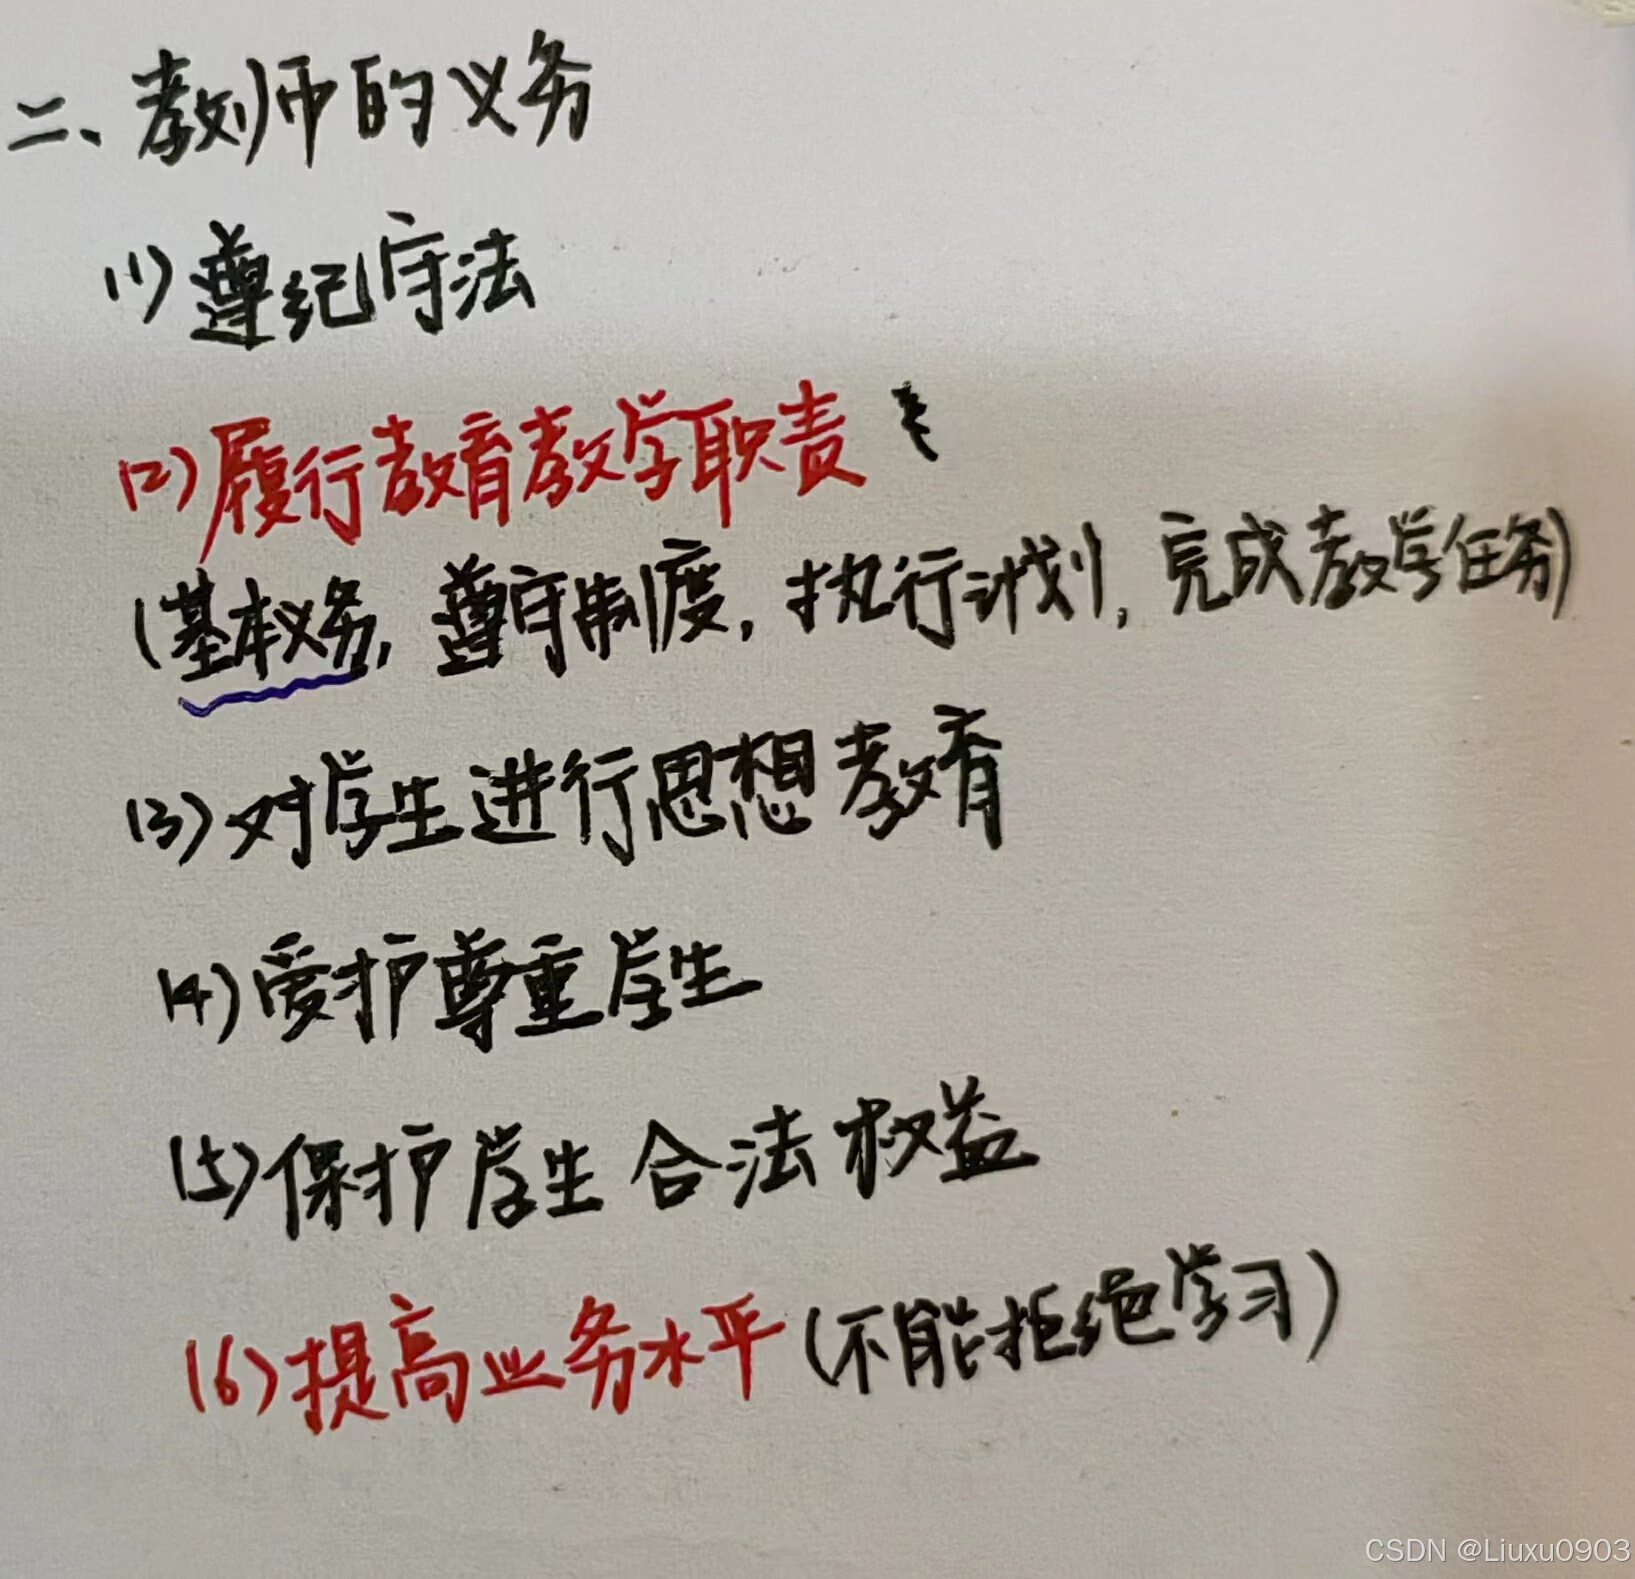 二、教师的义务
(1)遵纪守法
(2)履行教育教学职责
(基本义务,遵守制度,执行计划,完成教学任务)
(3)对学生进行思想教育
(4)爱护尊重学生
(5)保护学生合法权益
(6)提高业务水平(不能拒绝学习)
CSDN @Liuxu0903